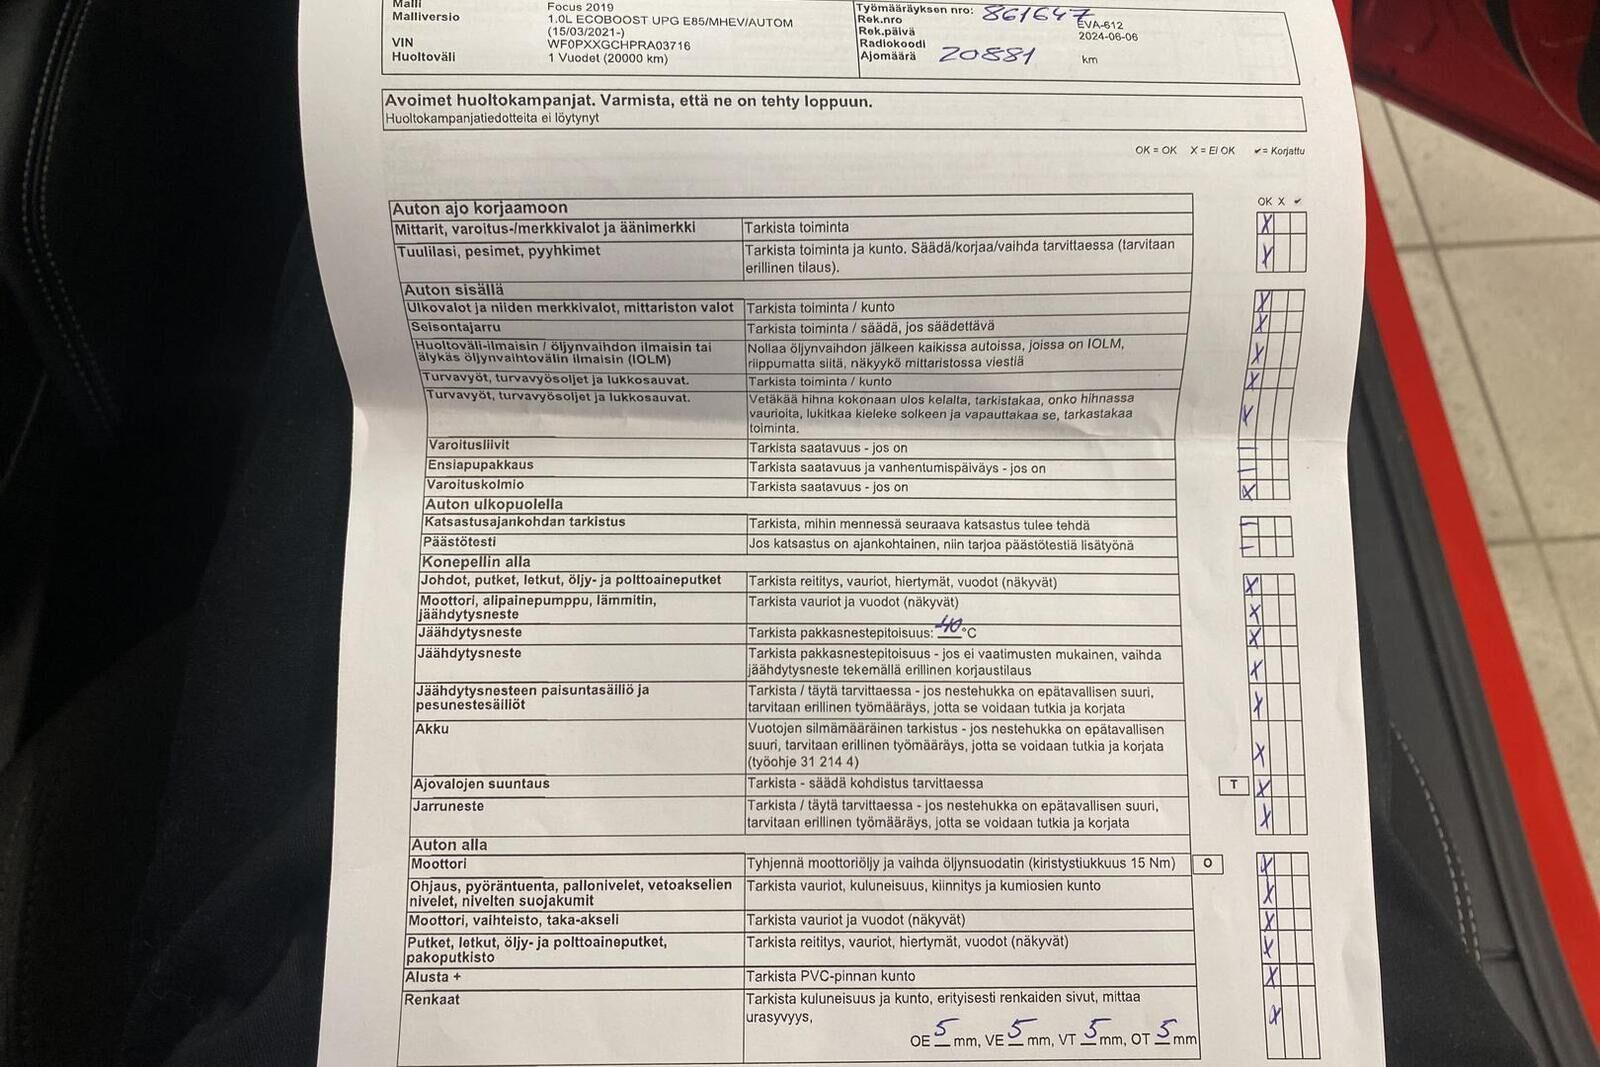 Malli Focus 2019 Työmääräyksen nro: 861647
Malliversio 1.0L ECOBOOST UPG E85/MHEV/AUTOM Rek.nro EVA-612
(15/03/2021-) Rek.päivä 2024-06-06
VIN WF0PXXGCHPRA03716 Radiokoodi
Huoltoväli 1 Vuodet (20000 km) Ajomäärä 20881 km
Avoimet huoltokampanjat. Varmista, että ne on tehty loppuun.
Huoltokampanjatiedotteita ei löytynyt
OK = OK X = EI OK ✔= Korjattu
OK X ✔
Auton ajo korjaamoon
Mittarit, varoitus-/merkkivalot ja äänimerkki Tarkista toiminta X
Tuulilasi, pesimet, pyyhkimet Tarkista toiminta ja kunto. Säädä/korjaa/vaihda tarvittaessa (tarvitaan X
erillinen tilaus).
Auton sisällä
Ulkovalot ja niiden merkkivalot, mittariston valot Tarkista toiminta / kunto X
Seisontajarru Tarkista toiminta / säädä, jos säädettävä X
Huoltoväli-ilmaisin / öljynvaihdon ilmaisin tai Nollaa öljynvaihdon jälkeen kaikissa autoissa, joissa on IOLM, X
älykäs öljynvaihtovälin ilmaisin (IOLM) riippumatta siitä, näkyykö mittaristossa viestiä
Turvavyöt, turvavyösoljet ja lukkosauvat. Tarkista toiminta / kunto X
Turvavyöt, turvavyösoljet ja lukkosauvat. Vetäkää hihna kokonaan ulos kelalta, tarkistakaa, onko hihnassa X
vaurioita, lukitkaa kieleke solkeen ja vapauttakaa se, tarkastakaa
toiminta.
Varoitusliivit Tarkista saatavuus - jos on –
Ensiapupakkaus Tarkista saatavuus ja vanhentumispäiväys - jos on –
Varoituskolmio Tarkista saatavuus - jos on X
Auton ulkopuolella
Katsastusajankohdan tarkistus Tarkista, mihin mennessä seuraava katsastus tulee tehdä –
Päästötesti Jos katsastus on ajankohtainen, niin tarjoa päästötestiä lisätyönä –
Konepellin alla
Johdot, putket, letkut, öljy- ja polttoaineputket Tarkista reititys, vauriot, hiertymät, vuodot (näkyvät) X
Moottori, alipainepumppu, lämmitin, Tarkista vauriot ja vuodot (näkyvät) X
jäähdytysneste
Jäähdytysneste Tarkista pakkasnestepitoisuus: -40 °C X
Jäähdytysneste Tarkista pakkasnestepitoisuus - jos ei vaatimusten mukainen, vaihda X
jäähdytysneste tekemällä erillinen korjaustilaus
Jäähdytysnesteen paisuntasäiliö ja Tarkista / täytä tarvittaessa - jos nestehukka on epätavallisen suuri, X
pesunestesäiliöt tarvitaan erillinen työmääräys, jotta se voidaan tutkia ja korjata
Akku Vuotojen silmämääräinen tarkistus - jos nestehukka on epätavallisen X
suuri, tarvitaan erillinen työmääräys, jotta se voidaan tutkia ja korjata
(työohje 31 214 4)
Ajovalojen suuntaus Tarkista - säädä kohdistus tarvittaessa T X
Jarruneste Tarkista / täytä tarvittaessa - jos nestehukka on epätavallisen suuri, X
tarvitaan erillinen työmääräys, jotta se voidaan tutkia ja korjata
Auton alla
Moottori Tyhjennä moottoriöljy ja vaihda öljynsuodatin (kiristystiukkuus 15 Nm) O X
Ohjaus, pyöräntuenta, pallonivelet, vetoakselien Tarkista vauriot, kuluneisuus, kiinnitys ja kumiosien kunto X
nivelet, nivelten suojakumit
Moottori, vaihteisto, taka-akseli Tarkista vauriot ja vuodot (näkyvät) X
Putket, letkut, öljy- ja polttoaineputket, Tarkista reititys, vauriot, hiertymät, vuodot (näkyvät) X
pakoputkisto
Alusta + Tarkista PVC-pinnan kunto X
Renkaat Tarkista kuluneisuus ja kunto, erityisesti renkaiden sivut, mittaa X
urasyvyys,
OE 5 mm, VE 5 mm, VT 5 mm, OT 5 mm